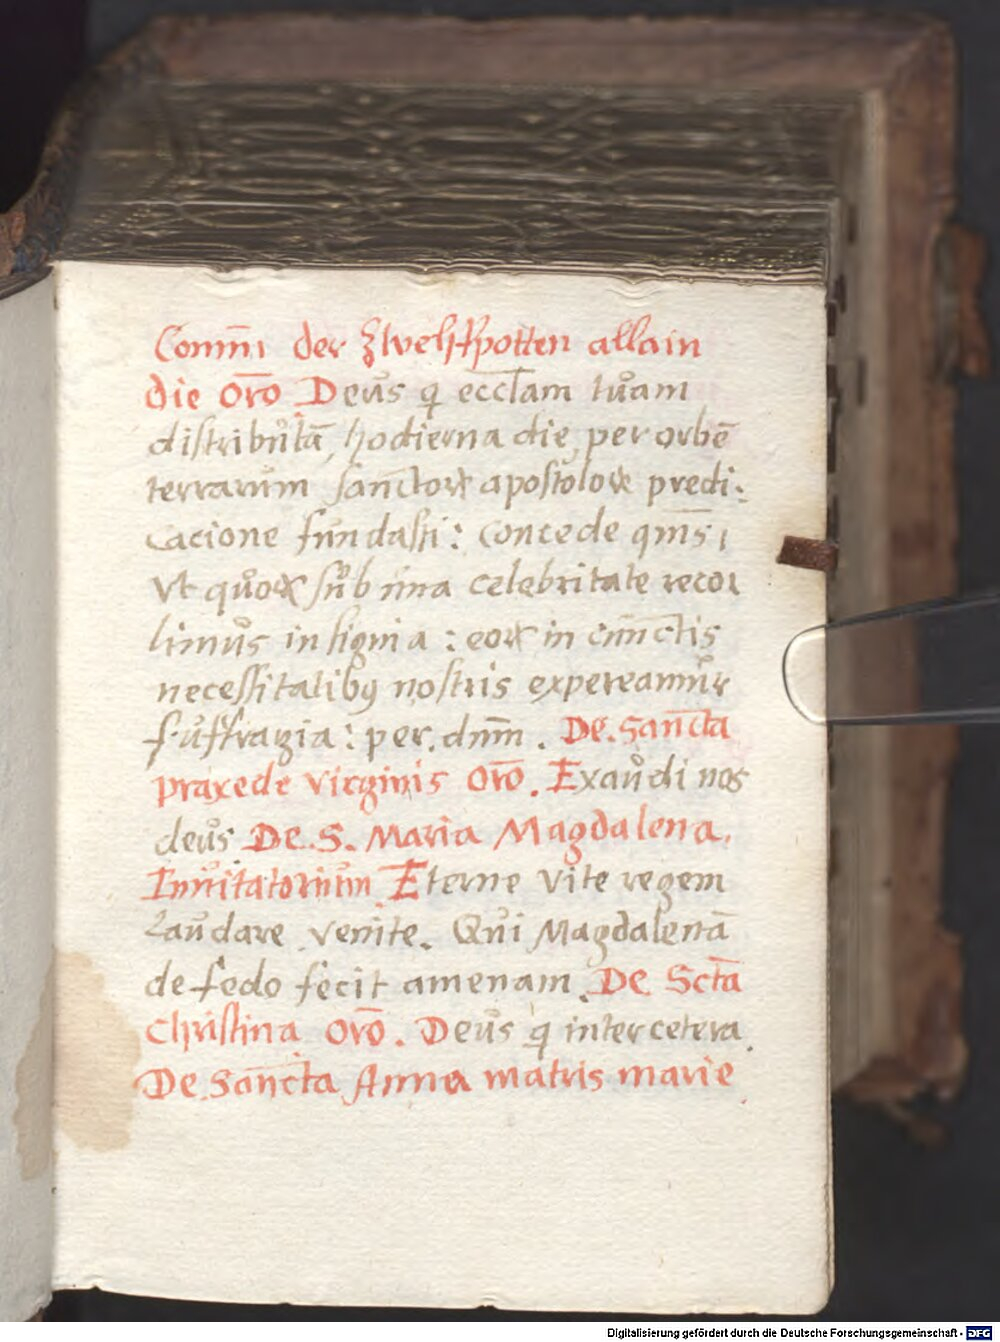 Com̅n̅i der Zwelfpotten allain
die Or̅o Deus q̇ eccl̅am tuam
distributa̅, hodierna die, per orbe̅
terrarum sanctoꝝ apostoloꝝ predi:
cacione fundasti: Concede qm̅s,
Vt quoꝝ sub una celebritate reco
limus insignia: eoꝝ in cunctis
necessitatibꝫ nostris expereamur
suffragia: per. dnm̅. De. Sancta
praxede virginis Or̅o. Exaudi nos
deus De. S. Maria Magdalena.
Inuitatorium Eterne vite regem
Laudare venite. Qui Magdalena̅
de fedo fecit amenam. De Sct̅a
Christina Or̅o. Deus q̇ inter cetera.
De Sancta Anna matris marie
Digitalisierung gefördert durch die Deutsche Forschungsgemeinschaft - DFG